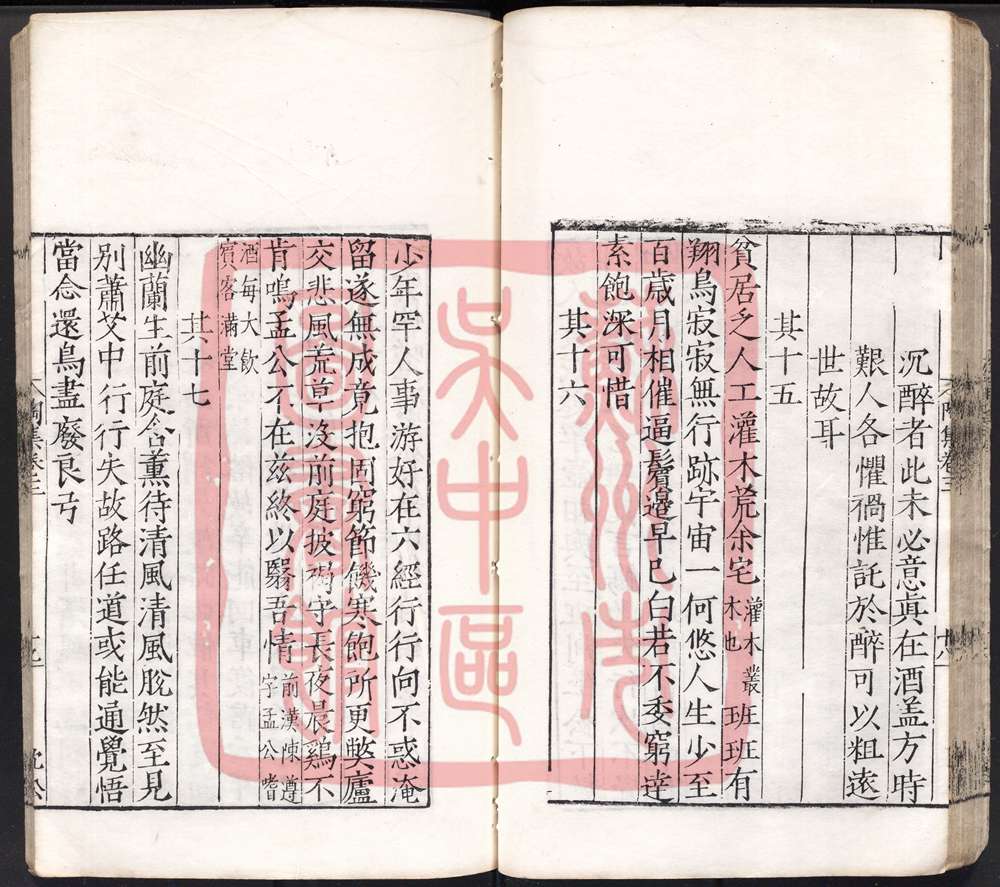 沉醉者此未必意真在酒蓋方時
艱人各懼禍惟託於醉可以粗遠
世故耳
其十五
貧居乏人工灌木荒余宅灌木叢木也班班有
翔鳥寂寂無行跡宇宙一何悠人生少至
百歲月相催逼鬢邊早已白若不委窮達
素飽深可惜
其十六
少年罕人事游好在六經行行向不惑淹
留遂無成竟抱固窮節饑寒飽所更獘廬
交悲風荒草沒前庭披褐守長夜晨鷄不
肯鳴孟公不在茲終以翳吾情前漢陳遵字孟公嗜
酒每大飲賓客滿堂
其十七
幽蘭生前庭含薰待清風清風脫然至見
別蕭艾中行行失故路任道或能通覺悟
當念還鳥盡廢良弓
陶集卷三
吳中區
圖書館
蘇州市